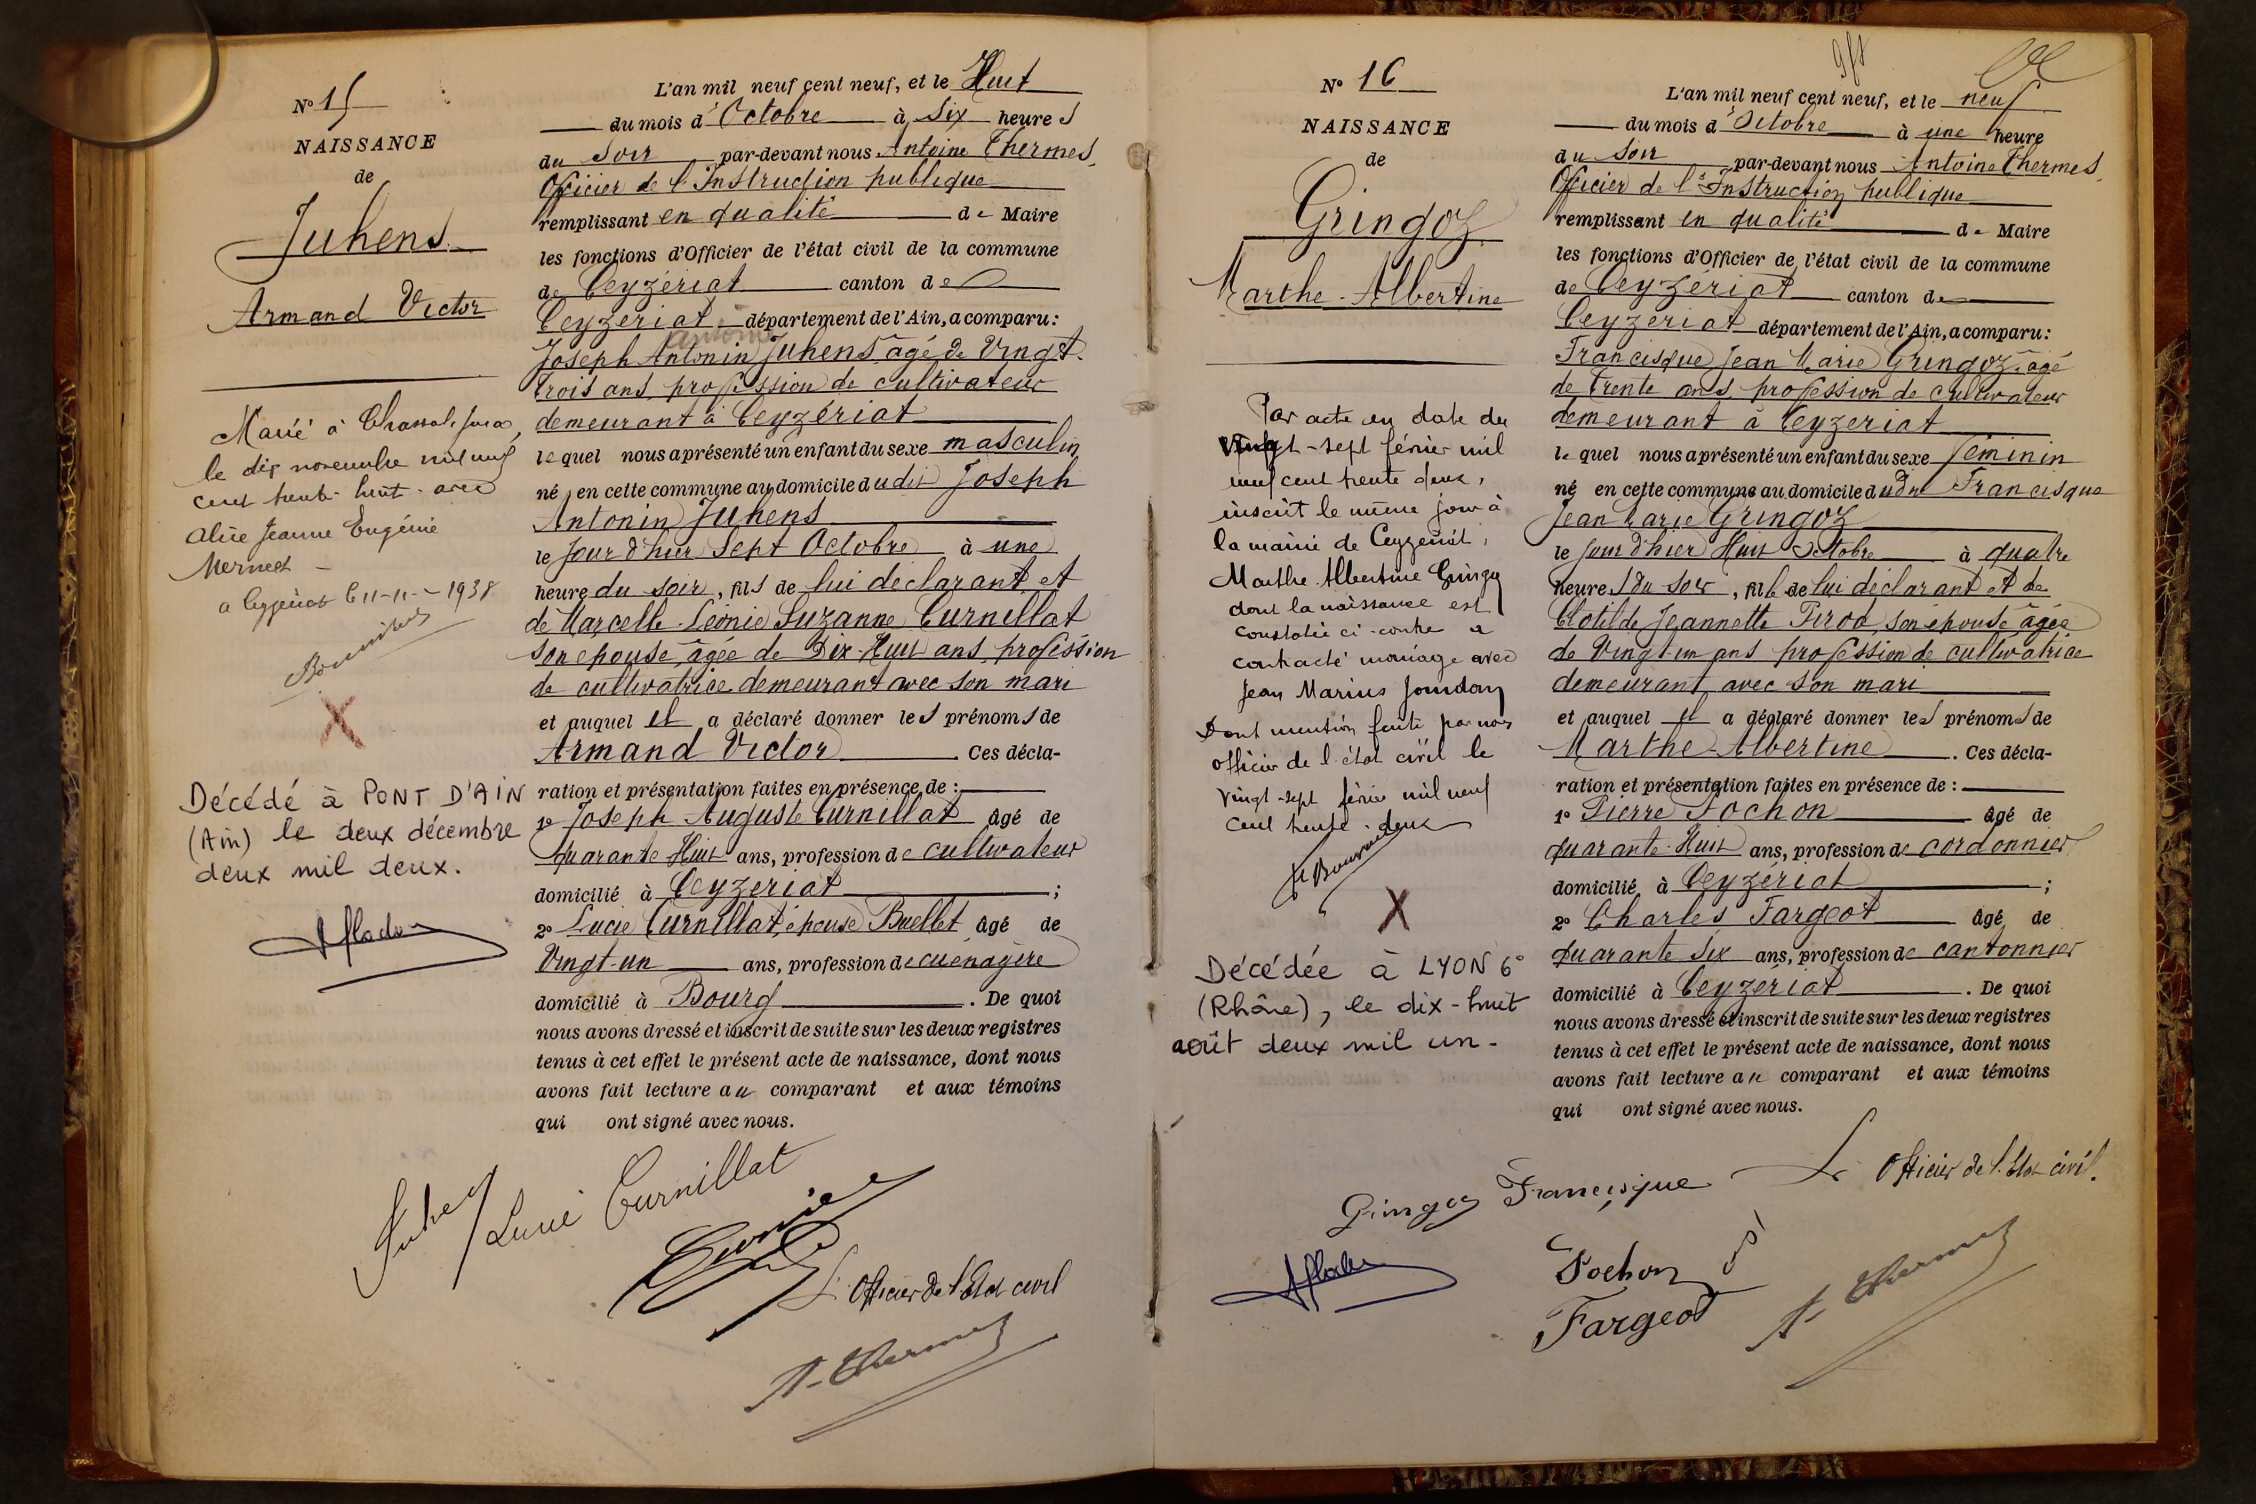 N° 15
NAISSANCE
de
Juhens
Armand Victor
Marié à
le dix novembre mil neuf
cent trente-huit avec
Alice Jeanne Eugénie
a Ceyzériat le 11-11-1938
X
Décédé à PONT D'AIN
(Ain) le deux décembre
deux mil deux.
L'an mil neuf cent neuf, et le Huit
du mois d'Octobre à Six heures
du Soir par-devant nous Antoine Thermes,
Officier de l'Instruction publique
remplissant en qualité de Maire
les fonctions d'Officier de l'état civil de la commune
de Ceyzériat canton de
Ceyzériat département de l'Ain, a comparu :
Joseph Antonin Juhens âgé de Vingt-
trois ans, profession de cultivateur
demeurant à Ceyzériat
lequel nous a présenté un enfant du sexe masculin
né en cette commune au domicile dudit Joseph
Antonin Juhens
le jour d'hier Sept Octobre à une
heure du soir, fils de lui déclarant et
de Marcelle Léonie Suzanne Curnillat
son épouse, âgée de Dix-Huit ans, profession
de cultivatrice demeurant avec son mari
et auquel il a déclaré donner les prénoms de
Armand Victor Ces décla-
ration et présentation faites en présence de :
1° Joseph Auguste Curnillat âgé de
quarante Huit ans, profession de cultivateur
domicilié à Ceyzériat ;
2° Lucie Curnillat, épouse Buellet âgé de
Vingt-un ans, profession de ménagère
domicilié à Bourg . De quoi
nous avons dressé et inscrit de suite sur les deux registres
tenus à cet effet le présent acte de naissance, dont nous
avons fait lecture au comparant et aux témoins
qui ont signé avec nous.
Juhens
Lucie Curnillat
L'Officier de l'État civil
A. Thermes
N° 16
NAISSANCE
de
Gringoz
Marthe-Albertine
Par acte en date du
vingt-sept février mil
neuf cent trente deux,
inscrit le même jour à
la mairie de Ceyzériat,
Marthe Albertine Gringoz
dont la naissance est
constatée ci-contre a
contracté mariage avec
Jean Marius Jourdan
Dont mention faite par nous
officier de l'état civil le
vingt-sept février mil neuf
cent trente-deux
X
Décédée à LYON 6°
(Rhône), le dix-huit
août deux mil un.
L'an mil neuf cent neuf, et le neuf
du mois d'Octobre à une heure
du Soir par-devant nous Antoine Thermes,
Officier de l'Instruction publique
remplissant en qualité de Maire
les fonctions d'Officier de l'état civil de la commune
de Ceyzériat canton de
Ceyzériat département de l'Ain, a comparu :
Francisque Jean Marie Gringoz âgé
de trente ans, profession de cultivateur
demeurant à Ceyzériat
lequel nous a présenté un enfant du sexe féminin
né en cette commune au domicile dudit Francisque
Jean Marie Gringoz
le jour d'hier Huit Octobre à quatre
heures du soir, fille de lui déclarant et de
Clotilde Jeannette Pirod, son épouse âgée
de Vingt-un ans profession de cultivatrice
demeurant avec son mari
et auquel il a déclaré donner les prénoms de
Marthe-Albertine . Ces décla-
ration et présentation faites en présence de :
1° Pierre Pochon âgé de
quarante-Huit ans, profession de cordonnier
domicilié à Ceyzériat ;
2° Charles Fargeot âgé de
quarante six ans, profession de cantonnier
domicilié à Ceyzériat . De quoi
nous avons dressé et inscrit de suite sur les deux registres
tenus à cet effet le présent acte de naissance, dont nous
avons fait lecture au comparant et aux témoins
qui ont signé avec nous.
Gringoz Francisque
L'Officier de l'État civil.
Pochon
Fargeot
A. Thermes